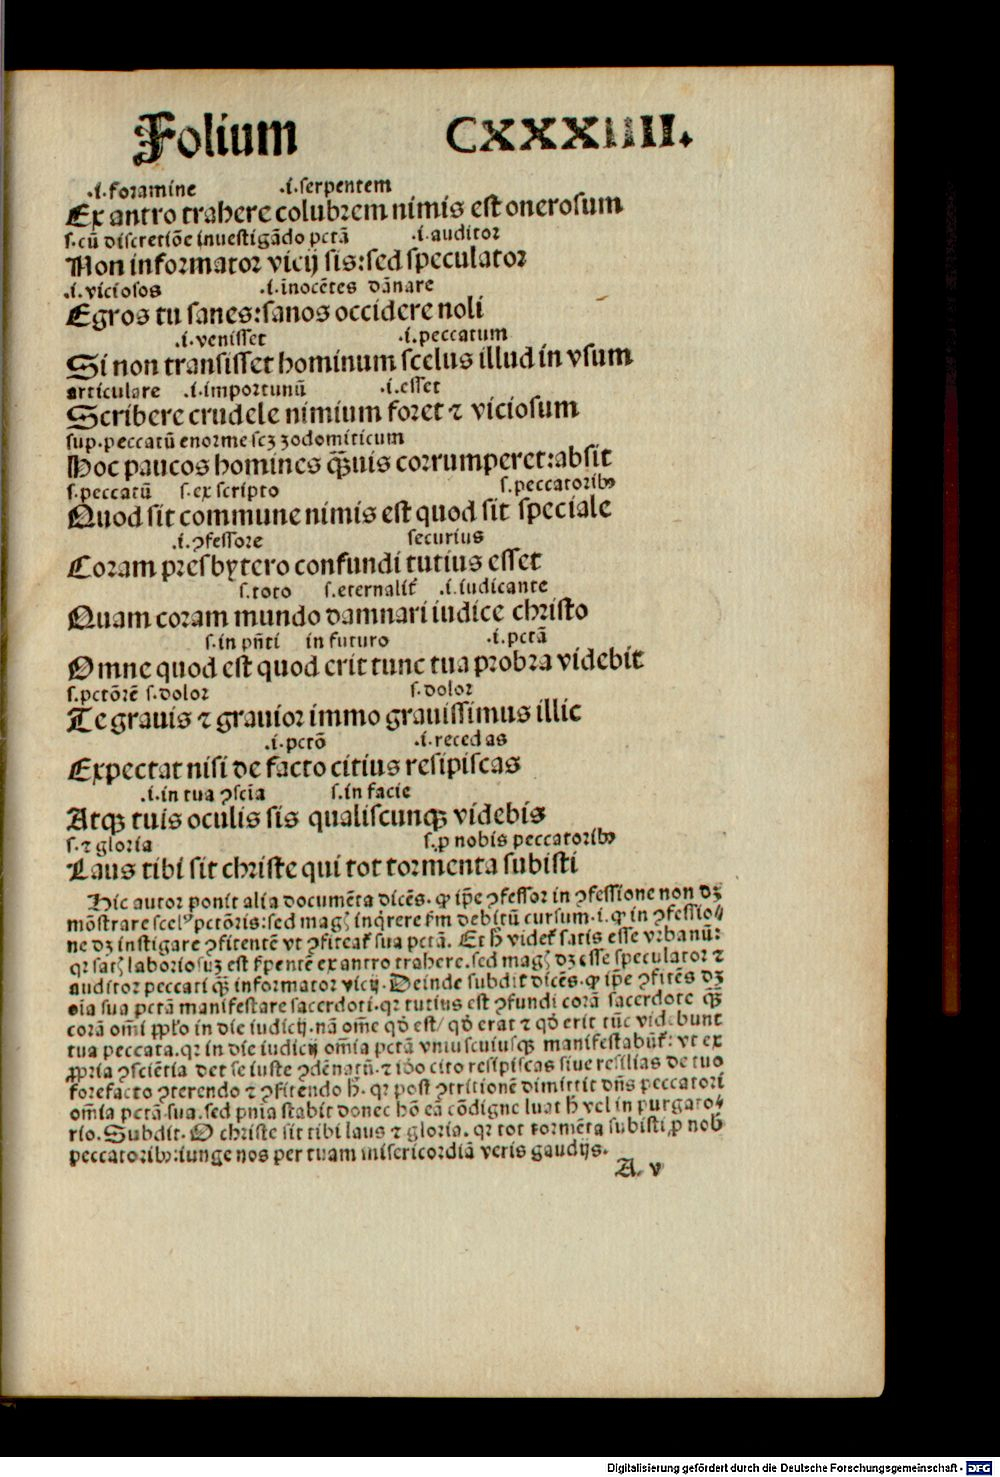 Folium CXXXIIII.
.i.foramine .i.serpentem
Ex antro trahere colubrem nimis est onerosum
s.cū discretiōe inuestigādo pctā .i.auditor
Non informator vicij sis:sed speculator
.i.viciosos .i.īnocētes dānare
Egros tu sanes:sanos occidere noli
.i.venisset .i.peccatum
Si non transisset hominum scelus illud in vsum
articulare .i.importunū .i.esset
Scribere crudele nimium foret ⁊ viciosum
sup.peccatū enorme scꝫ zodomiticum
Hoc paucos homines qᷓuis corrumperet:absit
s.peccatū s.ex scripto s.peccatoribꝰ
Quod sit commune nimis est quod sit speciale
.i.ꝯfessore securius
Coram presbytero confundi tutius esset
s.toto s.eternalit̉ .i.iudicante
Quam coram mundo damnari iudice christo
s.in pn̄ti in futuro .i.pctā
Omne quod est quod erit tunc tua probra videbit
s.pctōrē s.dolor s.dolor
Te grauis ⁊ grauior immo grauissimus illic
.i.pctō .i.recedas
Expectat nisi de facto citius resipiscas
.i.in tua ꝯscīa s.in facie
Atqꝫ tuis oculis sis qualiscunqꝫ videbis
s.⁊ gloria s.ꝓ nobis peccatoribꝰ
Laus tibi sit christe qui tot tormenta subisti
Hic autor ponit alia documēta dicēs. ꝙ ip̄e ꝯfessor in ꝯfessione non dꝫ
mōstrare scelꝰ pctōris:sed magꝭ inq̇rere ẜm debitū cursum.i.ꝙ in ꝯfessio⸗
ne dꝫ instigare ꝯfitentē vt ꝯfiteat̉ sua pctā. Et ħ videt̉ satis esse vrbanū:
qꝛ satꝭ laboriosuꝫ est ẜpentē ex antro trahere.sed magꝭ dꝫ esse speculator ⁊
auditor peccati qᷓꝫ informator vicij. Deinde subdit dicēs.ꝙ ip̄e ꝯfitēs dꝫ
oīa sua pctā manifestare sacerdoti.qꝛ tutius est ꝯfundi corā sacerdote qᷓꝫ
corā om̄i ppl̄o in die iudicij.nā om̄e qd̄ est/ qd̄ erat ⁊ qd̄ erit tūc videbunt
tua peccata.qꝛ in die iudicij om̄ia pctā vniuscuiusqꝫ manifestabūt̉: vt ex
ꝓpria ꝯsciētia det se iuste ꝯdēnatū.⁊ iō cito resipiscas siue resilias de tuo
forefacto ꝯterendo ⁊ ꝯfitendo ħ. qꝛ post ꝯtritionē dimittit dn̄s peccatori
om̄ia pctā sua.sed pn̄ia stabit donec hō eā cōdigne luat ħ vel in purgato⸗
rio. Subdit. O christe sit tibi laus ⁊ gloria. qꝛ tot tormēta subisti ꝓ nob̄
peccatoribꝰ:iunge nos per tuam misericordiā veris gaudijs.
A. v
Digitalisierung gefördert durch die Deutsche Forschungsgemeinschaft - DFG